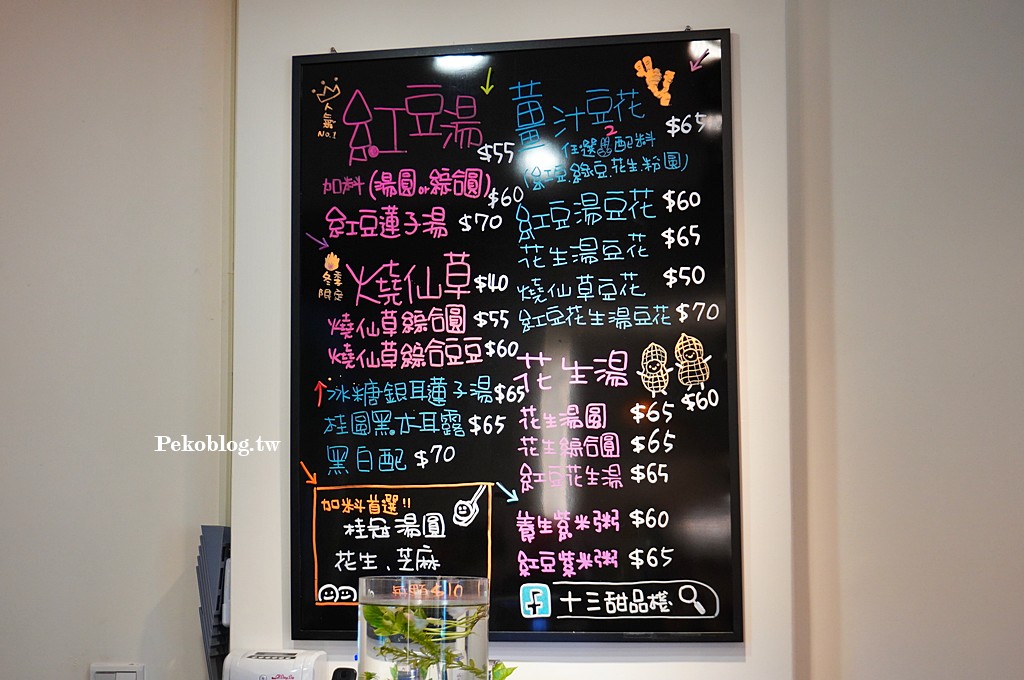 人氣
No.1
紅豆湯 $55
加料(湯圓or綜合圓) $60
紅豆蓮子湯 $70
冬季
限定
燒仙草 $40
燒仙草綜合圓 $55
燒仙草綜合豆豆 $60
冰糖銀耳蓮子湯 $65
桂圓黑木耳露 $65
黑白配 $70
加料首選!!
桂冠湯圓
花生、芝麻
$10
薑汁豆花 $65
任選2配料
(紅豆.綠豆.花生.粉圓)
紅豆湯豆花 $60
花生湯豆花 $65
燒仙草豆花 $50
紅豆花生湯豆花 $70
花生湯 $60
花生湯圓 $65
花生綜合圓 $65
紅豆花生湯 $65
養生紫米粥 $60
紅豆紫米粥 $65
f 十三甜品棧
Pekoblog.tw